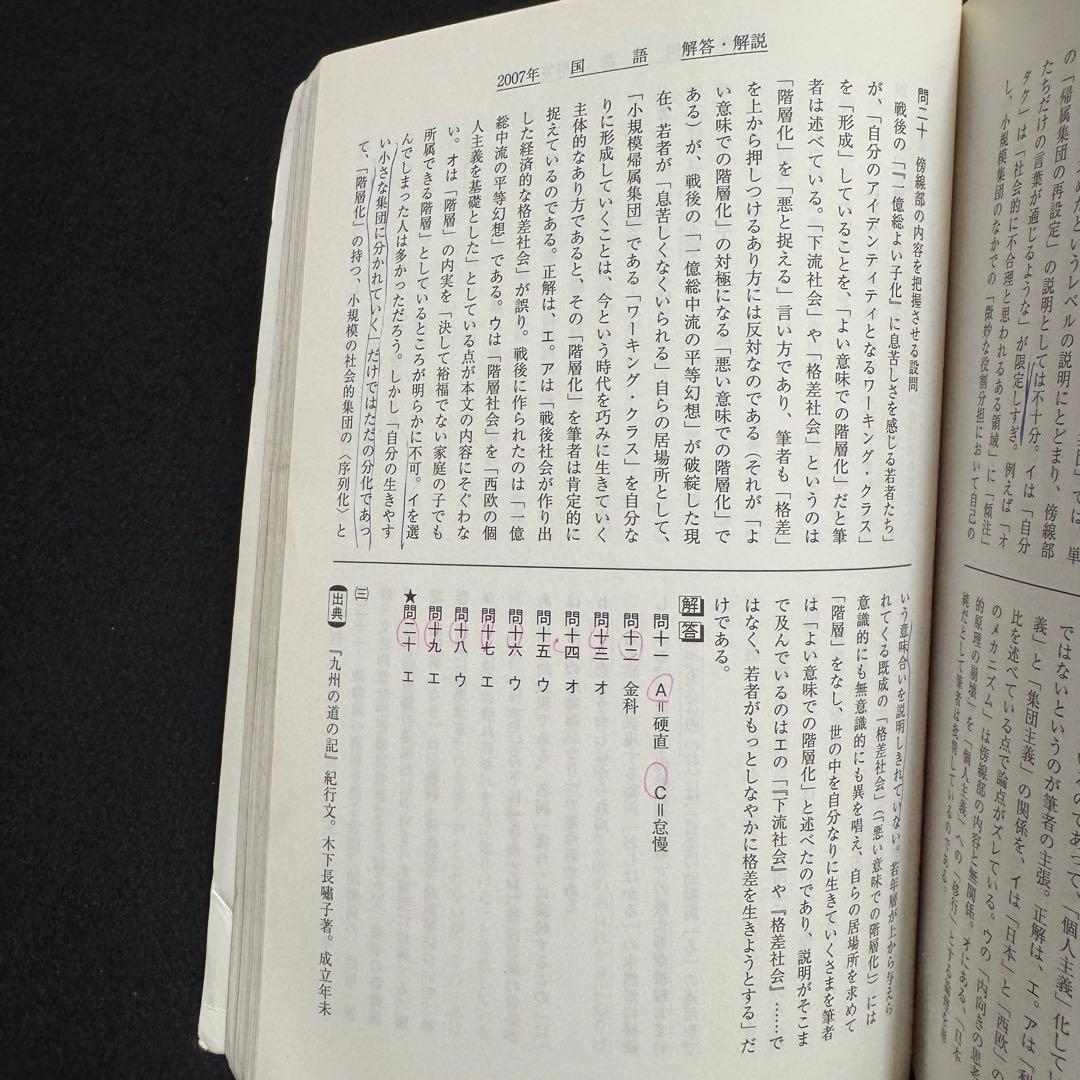 の「帰属集団の再設定」の説明としては不十分。イは「自分
たちだけの言葉が通じるような」が限定しすぎ。例えば「オ
タク」は「社会的に不合理と思われるある領域」に「傾注」
し、小規模集団のなかでの「微妙な役割分担において自己の
ではないというのが筆者の主張。正解は、エ。アは「科
義」と「集団主義」の関係を、イは「日本」と「西欧」の
比を述べている点で論点がズレている。ウの「内向きの思考
のメカニズム」は傍線部の内容と無関係。オにある、「日本
的原理の崩壊」を「個人主義」への「移行」とする論理を単
純だとして筆者は批判しているのである。
2007年 国 語 解答・解説
問二十 傍線部の内容を把握させる設問
戦後の「『一億総よい子化』に息苦しさを感じる若者たち」
が、「自分のアイデンティティとなるワーキング・クラス」
を「形成」していることを、「よい意味での階層化」だと筆
者は述べている。「下流社会」や「格差社会」というのは
「階層化」を「悪と捉える」言い方であり、筆者も「格差」
を上から押しつけるあり方には反対なのである（それが「よ
い意味での階層化」の対極になる「悪い意味での階層化」で
ある）が、戦後の「一億総中流の平等幻想」が破綻した現
在、若者が「息苦しくなくいられる」自らの居場所として、
「小規模帰属集団」である「ワーキング・クラス」を自分な
りに形成していくことは、今という時代を巧みに生きていく
主体的なあり方であると、その「階層化」を筆者は肯定的に
捉えているのである。正解は、エ。アは「戦後社会が作り出
した経済的な格差社会」が誤り。戦後に作られたのは「一億
総中流の平等幻想」である。ウは「階層社会」を「西欧の個
人主義を基礎とした」としている点が本文の内容にそぐわな
い。オは「階層」の内実を「決して裕福でない家庭の子でも
所属できる階層」としているところが明らかに不可。イを選
んでしまった人は多かっただろう。しかし「自分の生きやす
い小さな集団に分かれていく」だけではただの分化であっ
て、「階層化」の持つ、小規模の社会的集団の〈序列化〉と
いう意味合いを説明しきれていない。若年層が上から与えら
れてくる既成の「格差社会」（「悪い意味での階層化」）には
意識的にも無意識的にも異を唱え、自らの居場所を求めて
「階層」をなし、世の中を自分なりに生きていくさまを筆者
は「よい意味での階層化」と述べたのであり、説明がそこま
で及んでいるのはエの「『下流社会』や『格差社会』……で
はなく、若者がもっとしなやかに格差を生きようとする」だ
けである。
解答
問十一 A＝硬直 C＝怠慢
問十二 金科
問十三 オ
問十四 オ
問十五 ウ
問十六 ウ
問十七 エ
問十八 ウ
問十九 エ
★問二十 エ
(三)
出典 『九州の道の記』紀行文。木下長嘯子著。成立年未